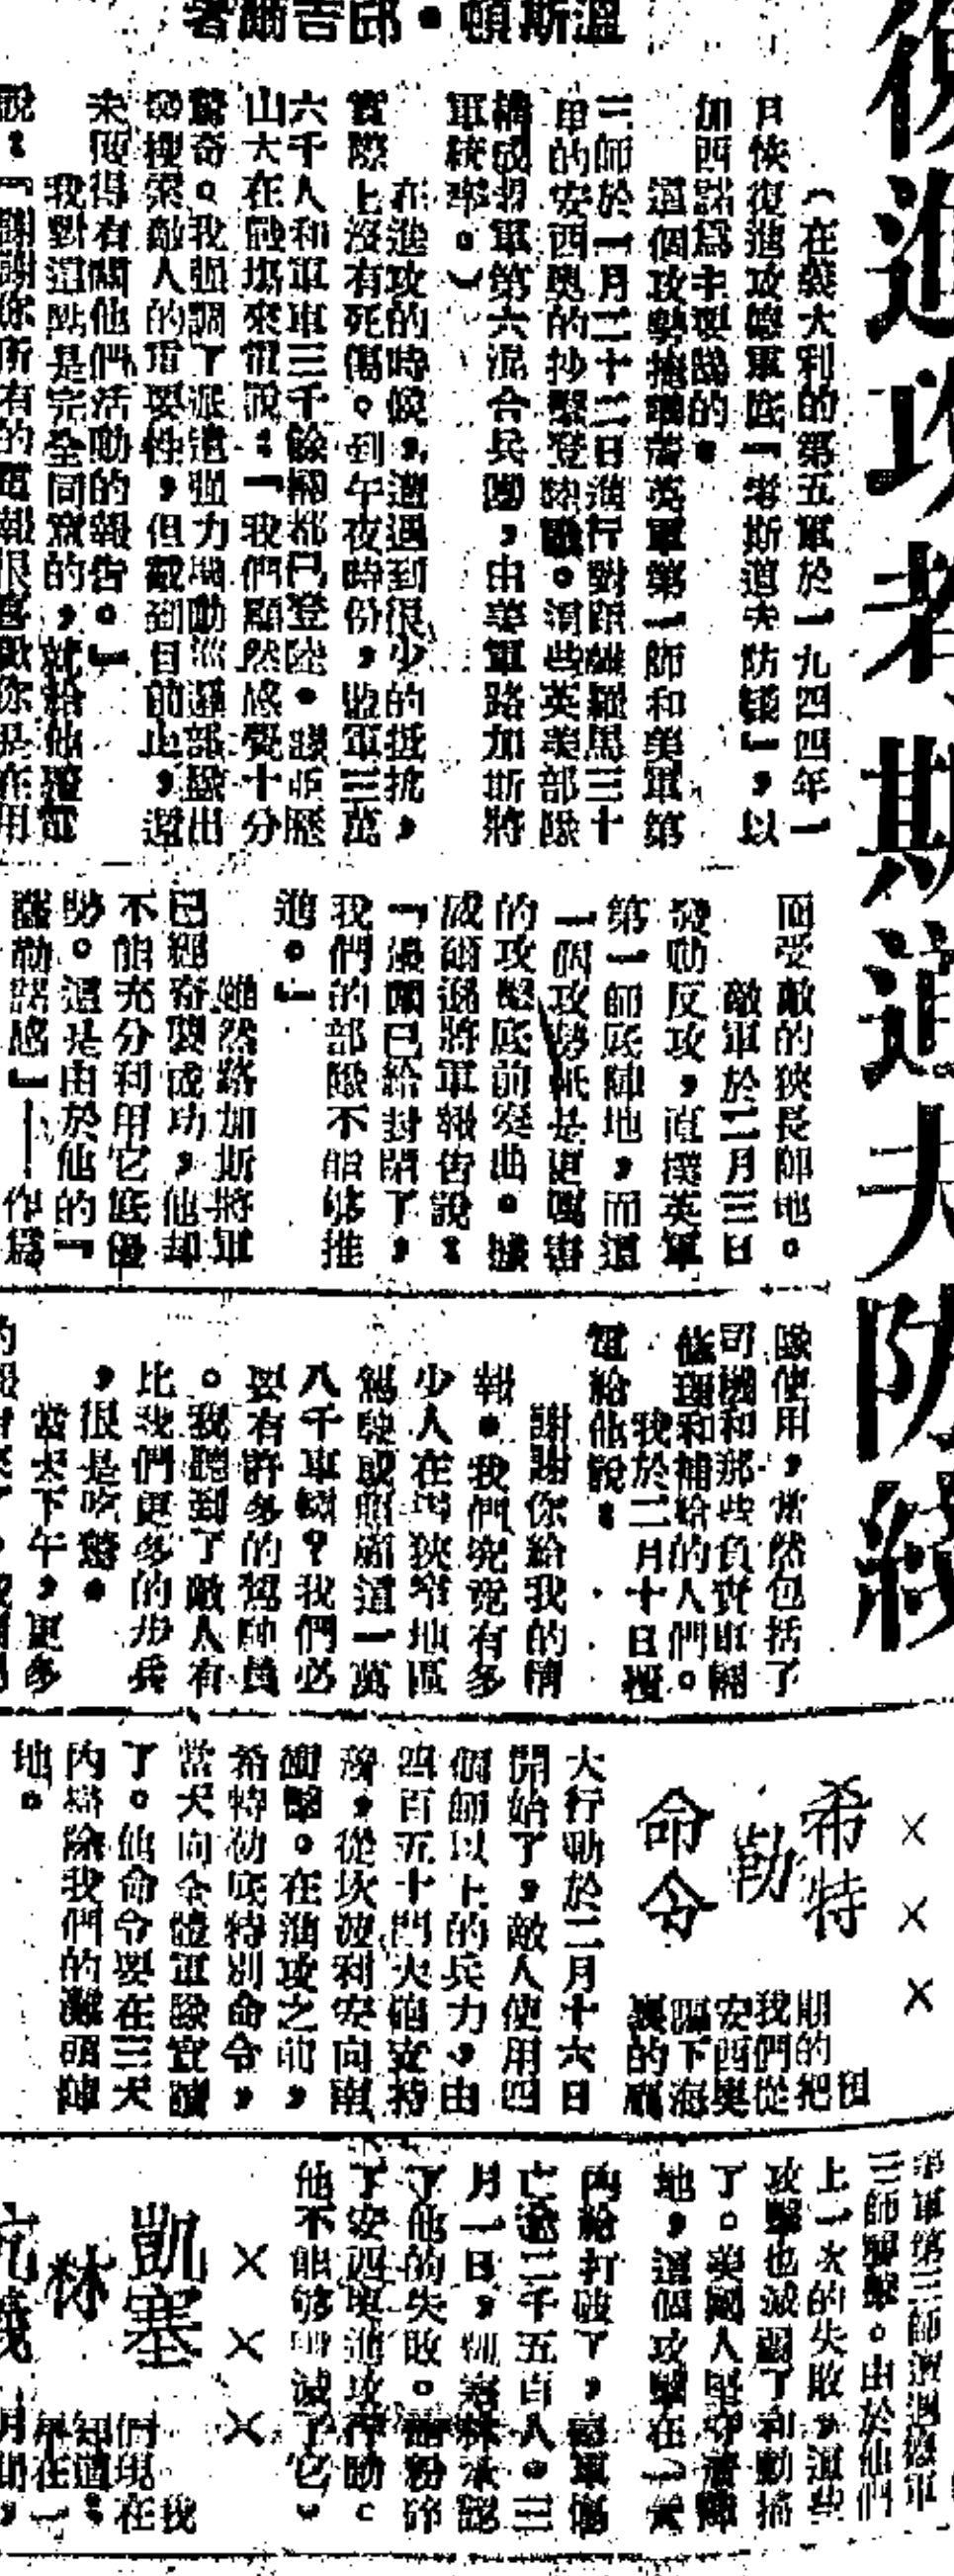 復進攻者斯道夫防綫
溫斯頓·邱吉爾著
(在義大利的第五軍於一九四四年一
月恢復進攻德軍底「堪斯道夫防綫」,以
加西諾爲主要戰的。
這個攻勢掩護着英軍第一師和美軍第
三師於一月二十二日進行對距離羅馬三十
里的安西奧的抄襲登陸戰。這些英美部隊
構成美軍第六混合兵團,由美軍路加斯將
軍統率。)
在進攻的時候,遭遇到很少的抵抗,
實際上沒有死傷。到午夜時份,盟軍三萬
六千人和軍車三千餘輛都已登陸。亞歷
山大在戰場來電說:「我們顯然感覺十分
驚奇。我強調了派遣強力機動巡邏部隊出
發搜索敵人的重要性,但截到目前止,還
未獲得有關他們活動的報告。」
我對這點是完全同意的,就給他覆電
說:「謝謝你所有的電報很喜歡你是在用
面受敵的狹長陣地。
敵軍於二月三日
發動反攻,直撲英軍
第一師底陣地,而這
一個攻勢祇是更厲害
的攻擊底前奏曲。據
威爾遜將軍報告說:
「缺口已給封閉了,
我們的部隊不能够推
進。」
雖然路加斯將軍
已經奇襲成功,他却
不能充分利用它底優
勢。這是由於他的「
薩勒諾感」——作爲
隊使用,當然包括了
司機和那些負責車輛
修理和補給的人們。
我於二月十日覆
電給他說:
謝謝你給我的情
報。我們究竟有多
少人在這狹窄地區
駕駛或照顧這一萬
八千車輛?我們必
要有許多的駕駛員
。我聽到了敵人有
比我們更多的步兵
,很是吃驚。
當天下午,更多
×××
希特
勒
命令
期的把
我們從
安西奧
驅下海
裏的
大行動於二月十六日
開始了,敵人使用四
個師以上的兵力,由
四百五十門大砲支持
着,從坎波利安向南
衝擊。在進攻之前,
希特勒底特別命令,
當天向全體軍隊宣讀
了。他命令要在三天
內掃除我們的灘頭陣
地。
美軍第三師遭遇德軍
三師襲擊。由於他們
上一次的失敗,這些
攻擊也減弱了和動搖
了。美國人堅守着陣
地,這個攻擊在一天
內給打破了,德軍傷
亡逾二千五百人。三
月一日,凱塞林承認
了他的失敗。粉碎
了安西奧進攻行動。
他不能够消滅了它。
×××
凱塞
林
我
們現在
知道:
早在一
月間,